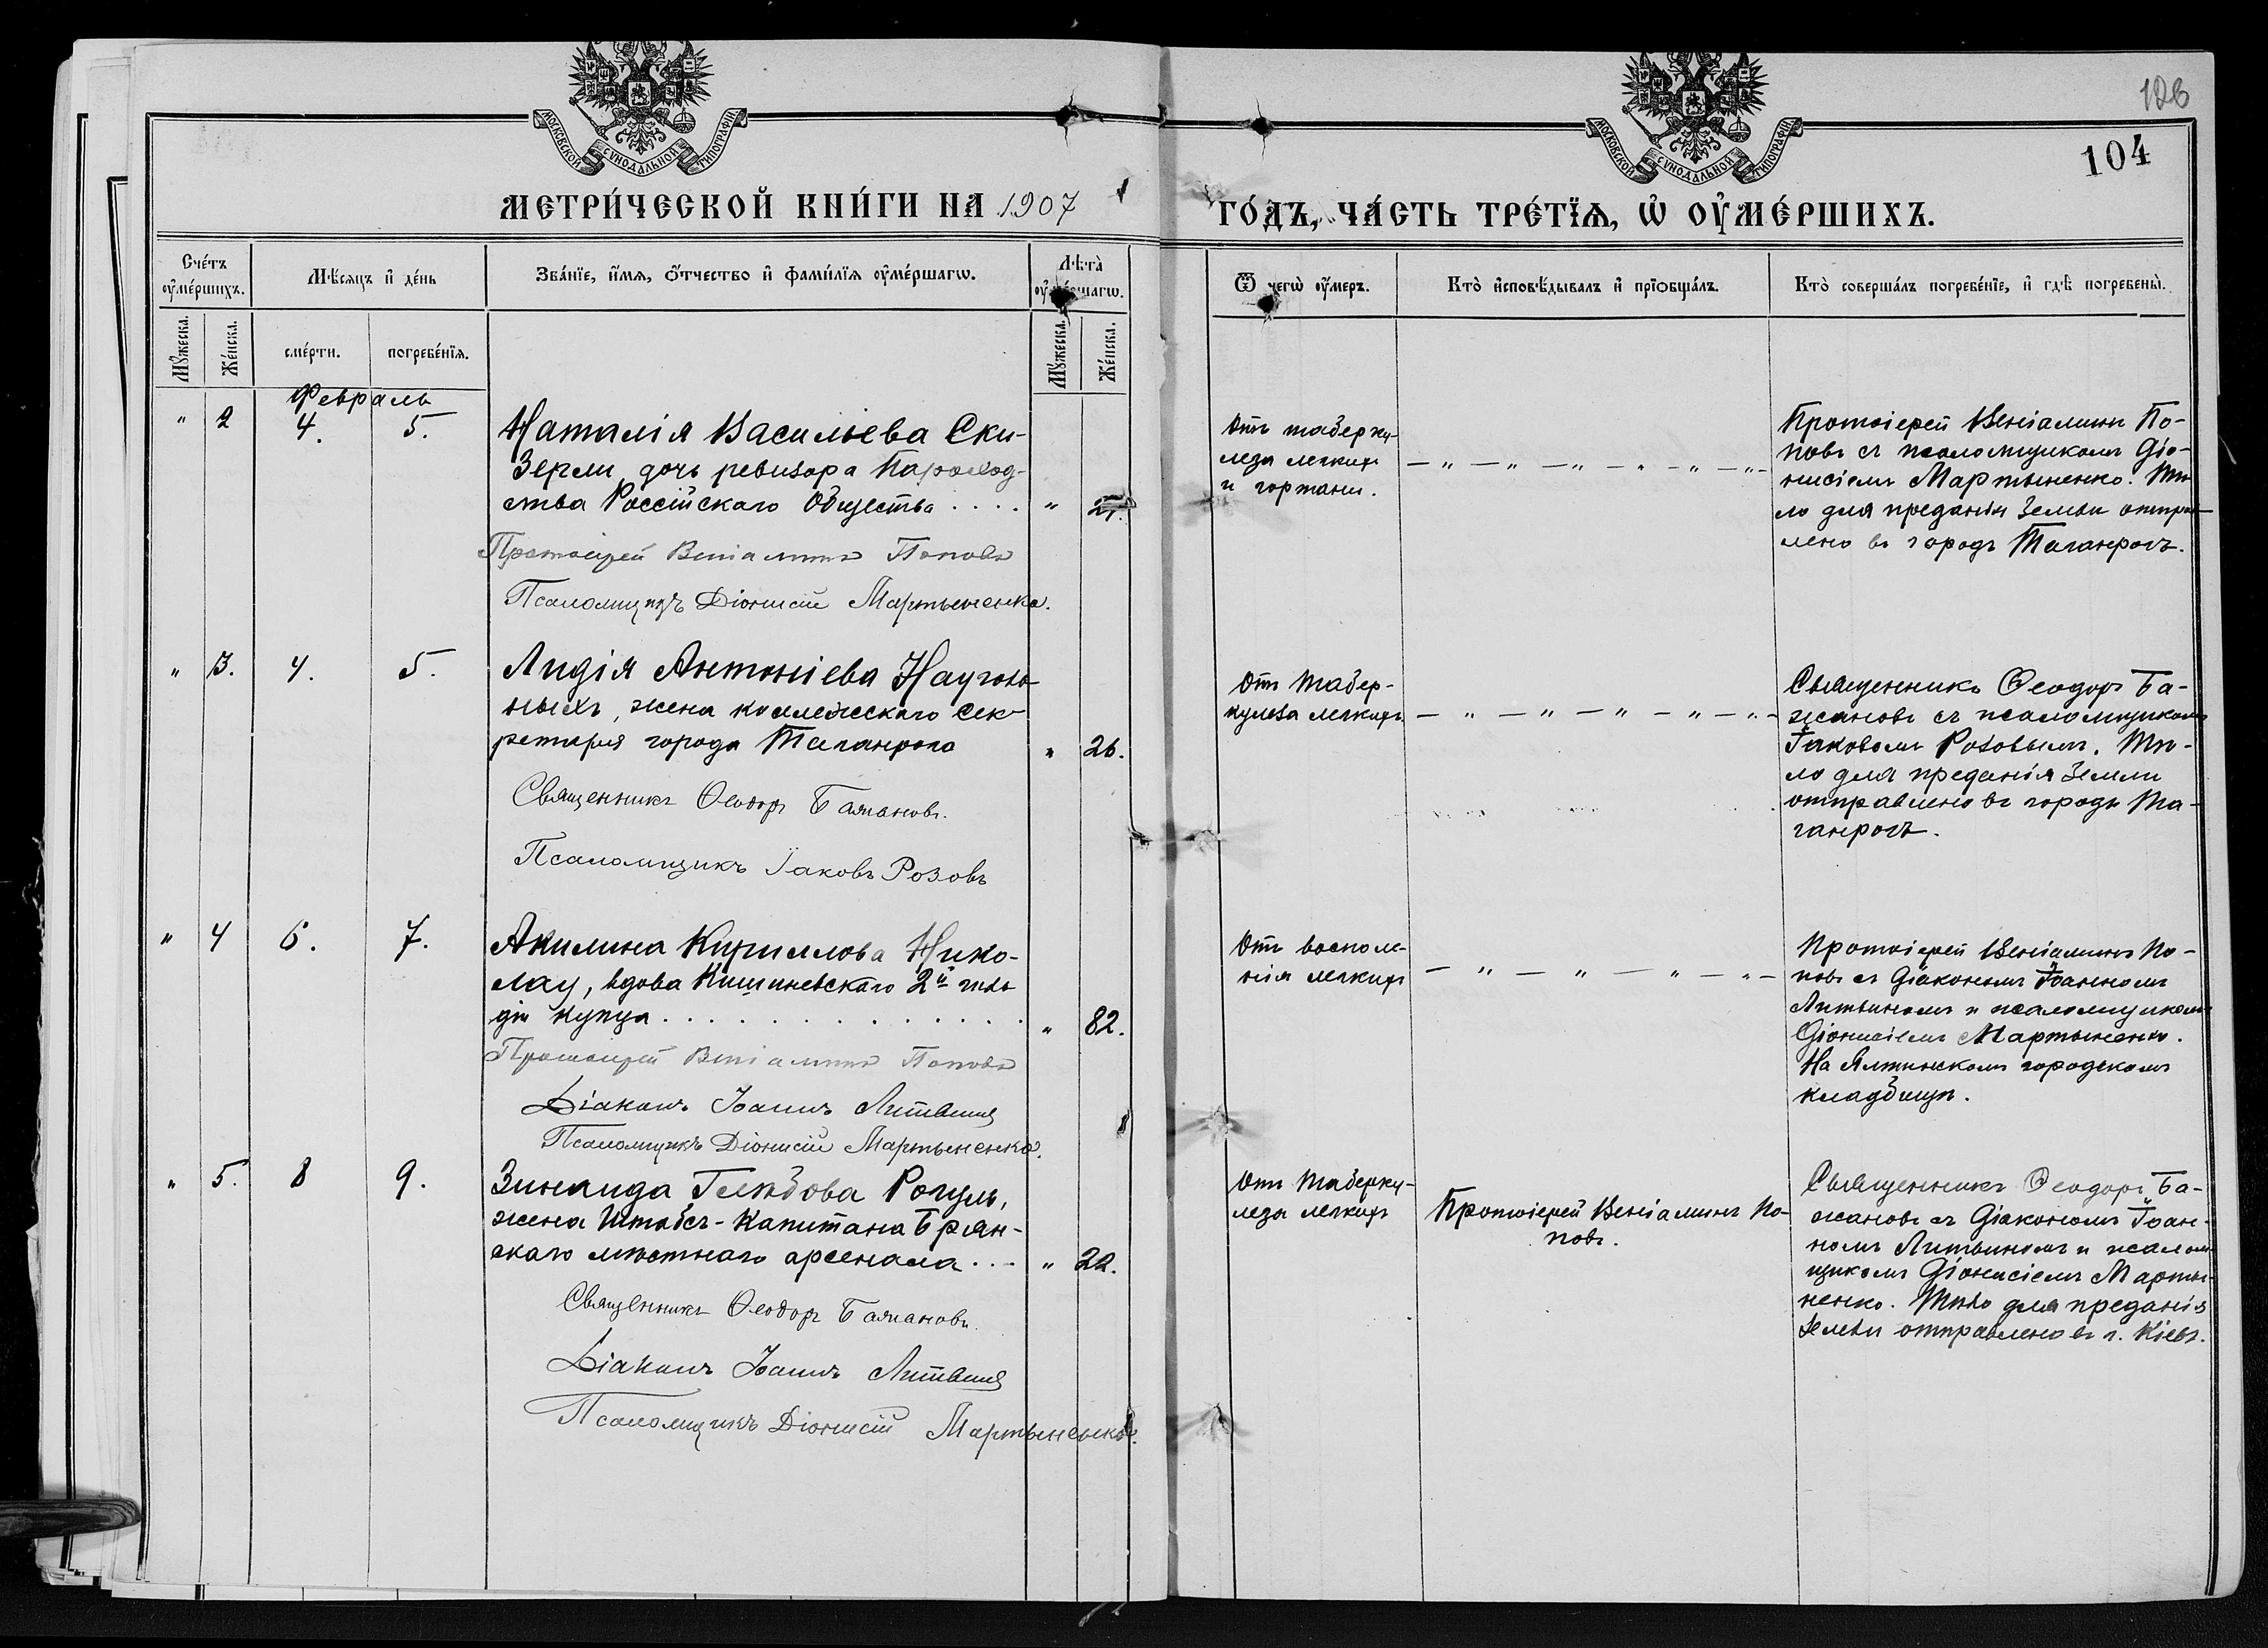 126
104
МОСКОВСКОЙ СѴНОДАЛЬНОЙ ТИПОГРАФІИ
МОСКОВСКОЙ СѴНОДАЛЬНОЙ ТИПОГРАФІИ
МЕТРИ́ЧЕСКОЙ КНИ́ГИ НА 1907
ГО́ДЪ, ЧА́СТЬ ТРЕ́ТЇѦ, Ѡ҆ ОУ҆МЕ́РШИХЪ.
Сче́тъ оу҆ме́ршихъ.
Мѣ́сяцъ и҆ де́нь
Зва́нїе, и҆́мѧ, ѻ҆́тчество и҆ фами́лїѧ оу҆ме́ршагѡ.
Лѣ̀та оу҆ме́ршагѡ.
Ѿ чегѡ̀ оу҆́меръ.
Кто̀ и҆сповѣ́дывалъ и҆ прїѡбща́лъ.
Кто̀ соверша́лъ погребе́нїе, и҆ гдѣ̀ погребены̀.
Мꙋ́жеска.
Же́нска.
сме́рти.
погребе́нїѧ.
Мꙋ́жеска.
Же́нска.
Февраль
" 2 4. 5.
Наталія Васильева Ски-
Зерли, дочь ревизора Пароход-
ства Россійскаго Общества . . . . "
Протоіерей Веніаминъ Поповъ
Псаломщикъ Діонисій Мартыненко.
Отъ таберку-
леза легкихъ
и гортани.
— " — " — " — " — " — " —
Протоіерей Веніаминъ По-
повъ съ псаломщикомъ Діо-
нисіемъ Мартыненко. Тѣ-
ло для преданія Земли отправ-
лено въ городъ Таганрогъ.
" 3. 4. 5.
Лидія Антоніева Наугол-
ныхъ, жена коллежскаго Сек-
ретаря города Таганрога " 26.
Священникъ Ѳеодоръ Бажановъ.
Псаломщикъ Іаковъ Розовъ
Отъ Табер-
кулеза легкихъ
— " — " — " — " — " —
Священникъ Ѳеодоръ Ба-
жановъ съ псаломщикомъ
Іаковомъ Розовымъ. Тѣ-
ло для преданія Земли
отправлено въ городъ Та-
ганрогъ.
" 4 6. 7.
Акилина Кириллова Нико-
лау, вдова Кишиневскаго 2й гиль-
діи купца . . . . . . . . . . . . . " 82.
Протоіерей Веніаминъ Поповъ
Діаконъ Іоаннъ Литвинъ
Псаломщикъ Діонисій Мартыненко.
Отъ воспале-
нія легкихъ
— " — " — " — " —
Протоіерей Веніаминъ По-
повъ съ Діакономъ Іоанномъ
Литвиномъ и псаломщикомъ
Діонисіемъ Мартыненко.
На Ялтинскомъ городскомъ
кладбищѣ.
" 5. 8 9.
Зинаида Глѣбова Рогуль,
жена Штабсъ-Капитана Брян-
скаго мѣстнаго арсенала . . . " 22.
Священникъ Ѳеодоръ Бажановъ.
Діаконъ Іоаннъ Литвинъ
Псаломщикъ Діонисій Мартыненко.
Отъ Таберку-
леза легкихъ
Протоіерей Веніаминъ По-
повъ.
Священникъ Ѳеодоръ Ба-
жановъ съ Діакономъ Іоан-
номъ Литвиномъ и псалом-
щикомъ Діонисіемъ Марты-
ненко. Тѣло для преданія
Земли отправлено въ г. Кіевъ.